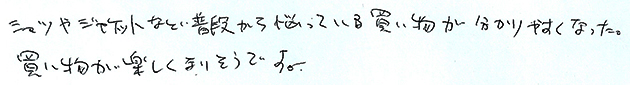 シャツやジャケットなど普段から悩っている買い物が分かりやすくなった。
買い物が楽しくまりそうです。